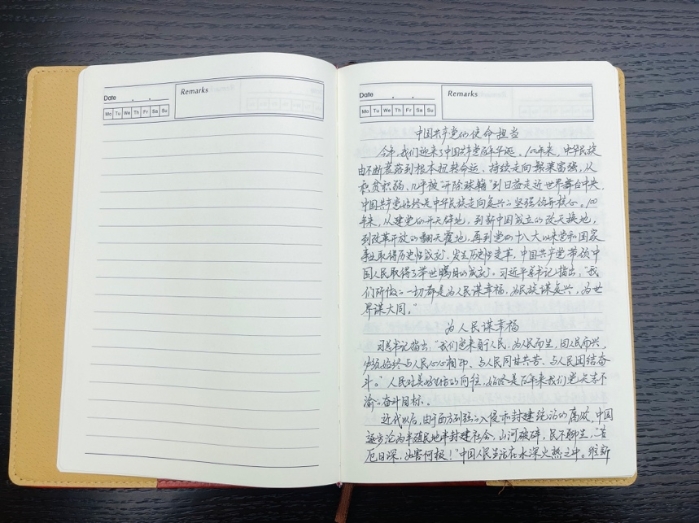 Date
Remarks
Mo Tu We Th Fr Sa Su
Date
Remarks
Mo Tu We Th Fr Sa Su
中国共产党的使命担当
今年,我们迎来了中国共产党百年华诞。100年来,中华民族
由不断衰落到根本扭转命运、持续走向繁荣富强,从
积贫积弱、几乎被“开除球籍”到日益走近世界舞台中央,
中国共产党始终是中华民族走向复兴的坚强领导核心。100
年来,从建党的开天辟地,到新中国成立的改天换地,
到改革开放的翻天覆地,再到党的十八大以来党和国家
事业取得历史性成就、发生历史性变革,中国共产党带领中
国人民取得了举世瞩目的成就。习近平总书记指出,“我
们所做的一切都是为人民谋幸福,为民族谋复兴,为世
界谋大同。”
为人民谋幸福
习总书记指出:“我们党来自人民,为人民而生,因人民而兴,
必须始终与人民心心相印、与人民同甘共苦、与人民团结奋
斗。”人民对美好生活的向往,始终是百年来我们党矢志不
渝的奋斗目标。
近代以后,由于西方列强的入侵和封建统治的腐败,中国
逐步沦为半殖民地半封建社会,山河破碎,民不聊生,“苦
厄日深,
何极!”中国人民生活在水深火热之中。